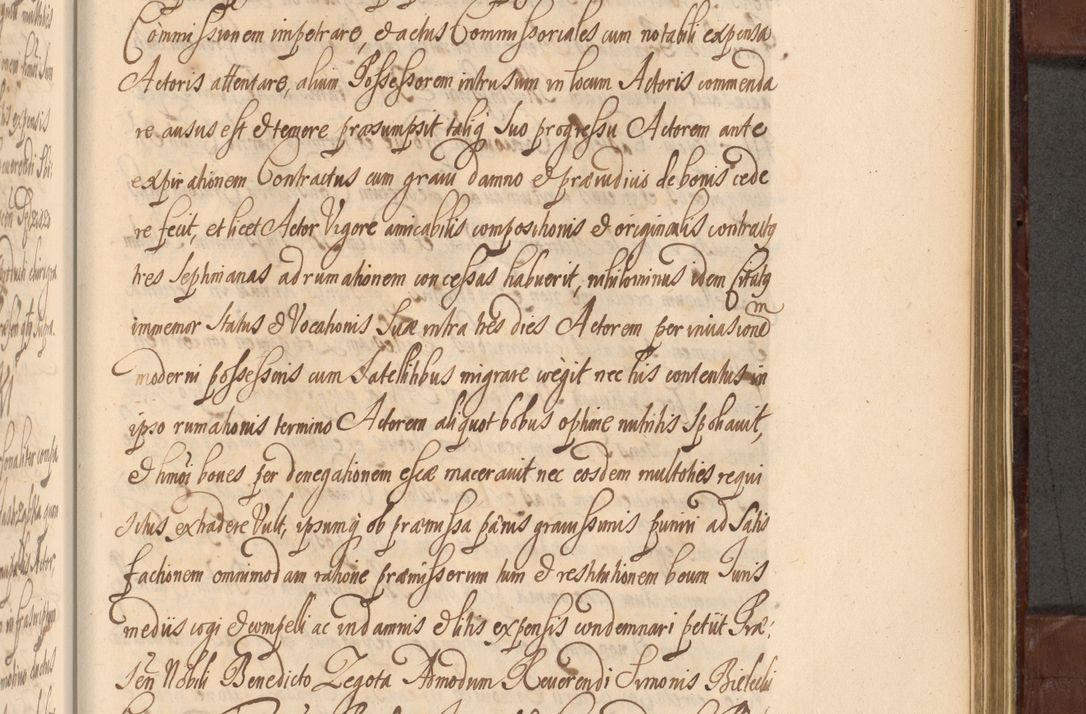 Commissionem impetrare, et actus Commissoriales cum notabili expensa
Actoris attentare, alium Possessorem intrusum in locum Actoris commenda
re ausus est et temere præsumpsit taliq suo progressu Actorem ante
expirationem Contractus cum gravi damno et præiudicius de bonis cede
re fecit, et licet Actor Vigore amicabilis compositionis et originalis contractq
tres septimanas ad rumationem concessas habuerit, nihilominus idem Citatq
immemor status et Vocationis suæ intra tres dies Actorem per invasionem
moderni possessoris cum Satellitibus migrare coegit nec his contentus in
ipso rumationis termino Actorem aliquot bobus optime nutritis spoliavit,
et hmoi boves per denegationem escæ maceravit nec eosdem multoties requi
situs extradere Vult, ipsumq ob præmissa pænis gravissimis puniri ad satis
factionem omnimodam ratione præmissorum tum et restitutionem boum Iuris
mediis cogi et compelli ac in damnis et litis expensis condemnari petiit Præ:
sen Nobili Benedicto Zegota Admodum Reverendi Simonis Bielecki